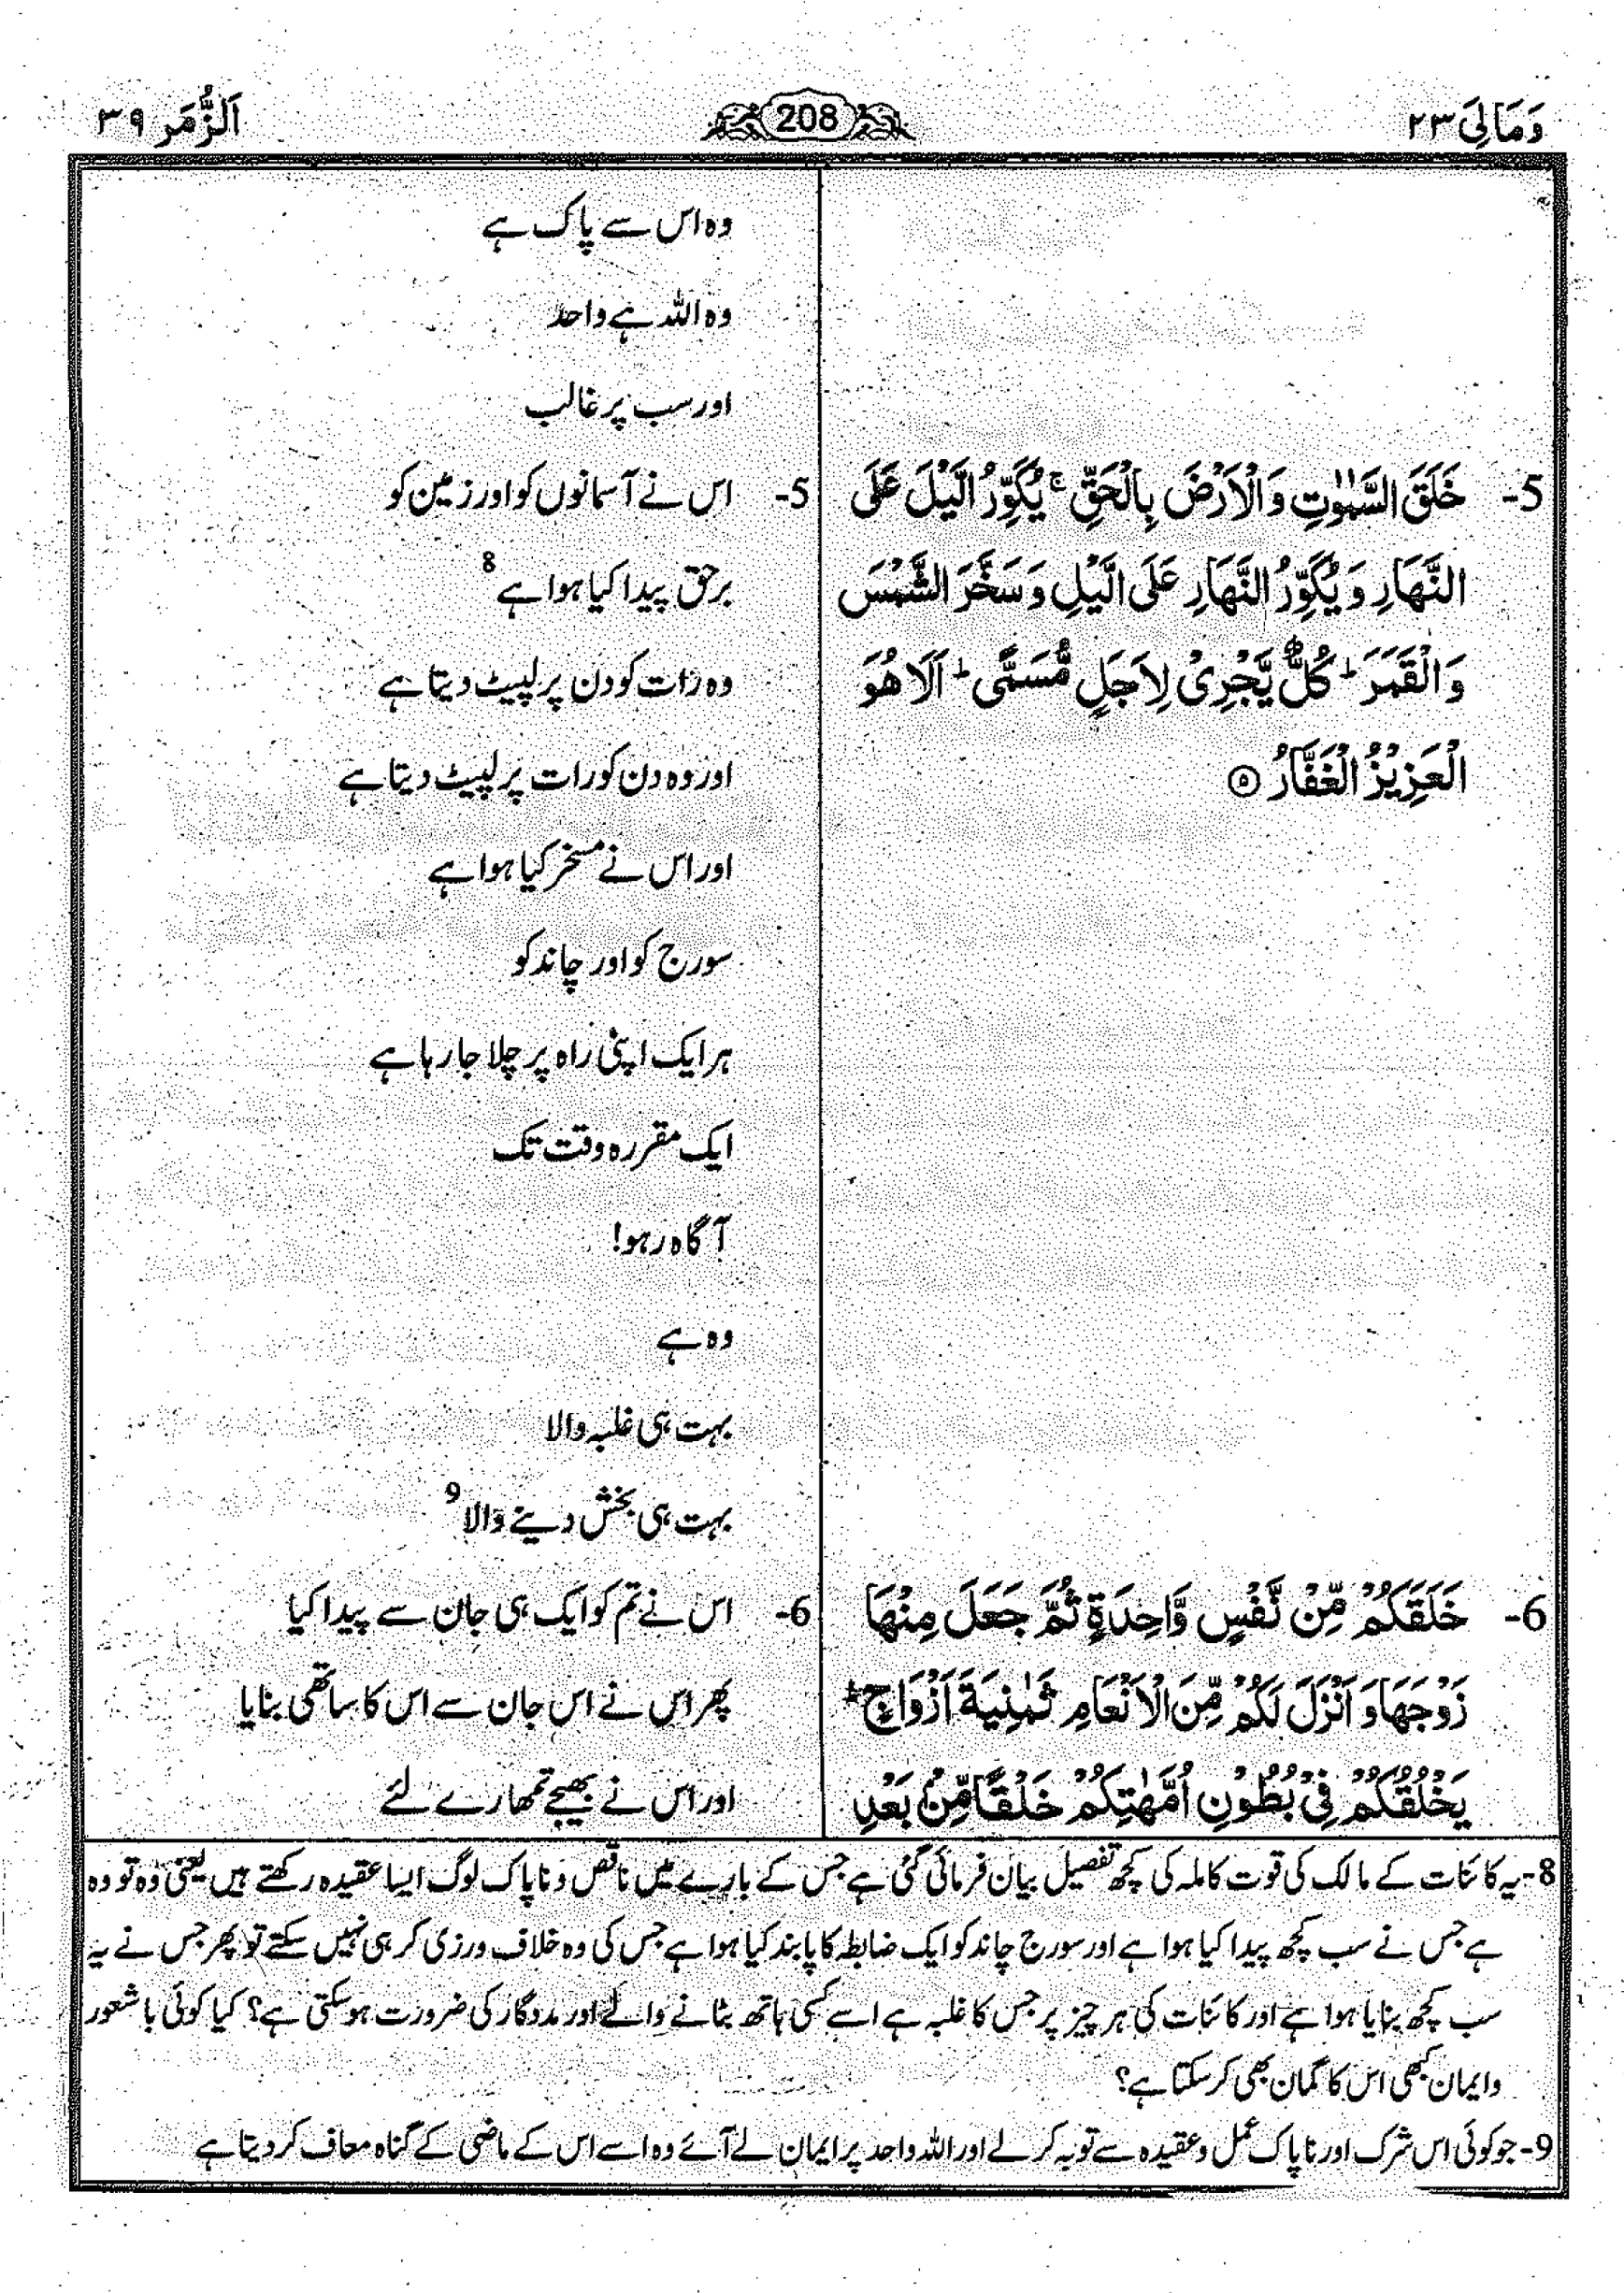 وَمَالِىَ ٢٣
208
اَلزُّمَر ٣٩
5- خَلَقَ السَّمٰوٰتِ وَالْاَرْضَ بِالْحَقِّ ۚ يُكَوِّرُ الَّيْلَ عَلَى
النَّهَارِ وَيُكَوِّرُ النَّهَارَ عَلَى الَّيْلِ وَسَخَّرَ الشَّمْسَ
وَالْقَمَرَ ؕ كُلٌّ يَّجْرِىْ لِاَجَلٍ مُّسَمًّى ؕ اَلَا هُوَ
الْعَزِيْزُ الْغَفَّارُ ۵
6- خَلَقَكُمْ مِّنْ نَّفْسٍ وَّاحِدَةٍ ثُمَّ جَعَلَ مِنْهَا
زَوْجَهَا وَ اَنْزَلَ لَكُمْ مِّنَ الْاَنْعَامِ ثَمٰنِيَةَ اَزْوَاجٍ ؕ
يَخْلُقُكُمْ فِىْ بُطُوْنِ اُمَّهٰتِكُمْ خَلْقًا مِّنْۢ بَعْدِ
وہ اس سے پاک ہے
وہ اللہ ہے واحد
اور سب پر غالب
5- اس نے آسمانوں کو اور زمین کو
برحق پیدا کیا ہوا ہے 8
وہ رات کو دن پر لپیٹ دیتا ہے
اور وہ دن کو رات پر لپیٹ دیتا ہے
اور اس نے مسخر کیا ہوا ہے
سورج کو اور چاند کو
ہر ایک اپنی راہ پر چلا جا رہا ہے
ایک مقررہ وقت تک
آگاہ رہو!
وہ ہے
بہت ہی غلبہ والا
بہت ہی بخش دینے والا 9
6- اس نے تم کو ایک ہی جان سے پیدا کیا
پھر اس نے اس جان سے اس کا ساتھی بنایا
اور اس نے بھیجے تمھارے لئے
8- یہ کائنات کے مالک کی قوت کاملہ کی کچھ تفصیل بیان فرمائی گئی ہے جس کے بارے میں ناقص و ناپاک لوگ ایسا عقیدہ رکھتے ہیں یعنی وہ تو وہ
ہے جس نے سب کچھ پیدا کیا ہوا ہے اور سورج چاند کو ایک ضابطہ کا پابند کیا ہوا ہے جس کی وہ خلاف ورزی کر ہی نہیں سکتے تو پھر جس نے یہ
سب کچھ بنایا ہوا ہے اور کائنات کی ہر چیز پر جس کا غلبہ ہے اسے کسی ہاتھ بٹانے والے اور مددگار کی ضرورت ہوسکتی ہے؟ کیا کوئی باشعور
وایمان کبھی اس کا گمان بھی کر سکتا ہے؟
9- جو کوئی اس شرک اور ناپاک عمل و عقیدہ سے توبہ کر لے اور اللہ واحد پر ایمان لے آئے وہ اسے اس کے ماضی کے گناہ معاف کر دیتا ہے